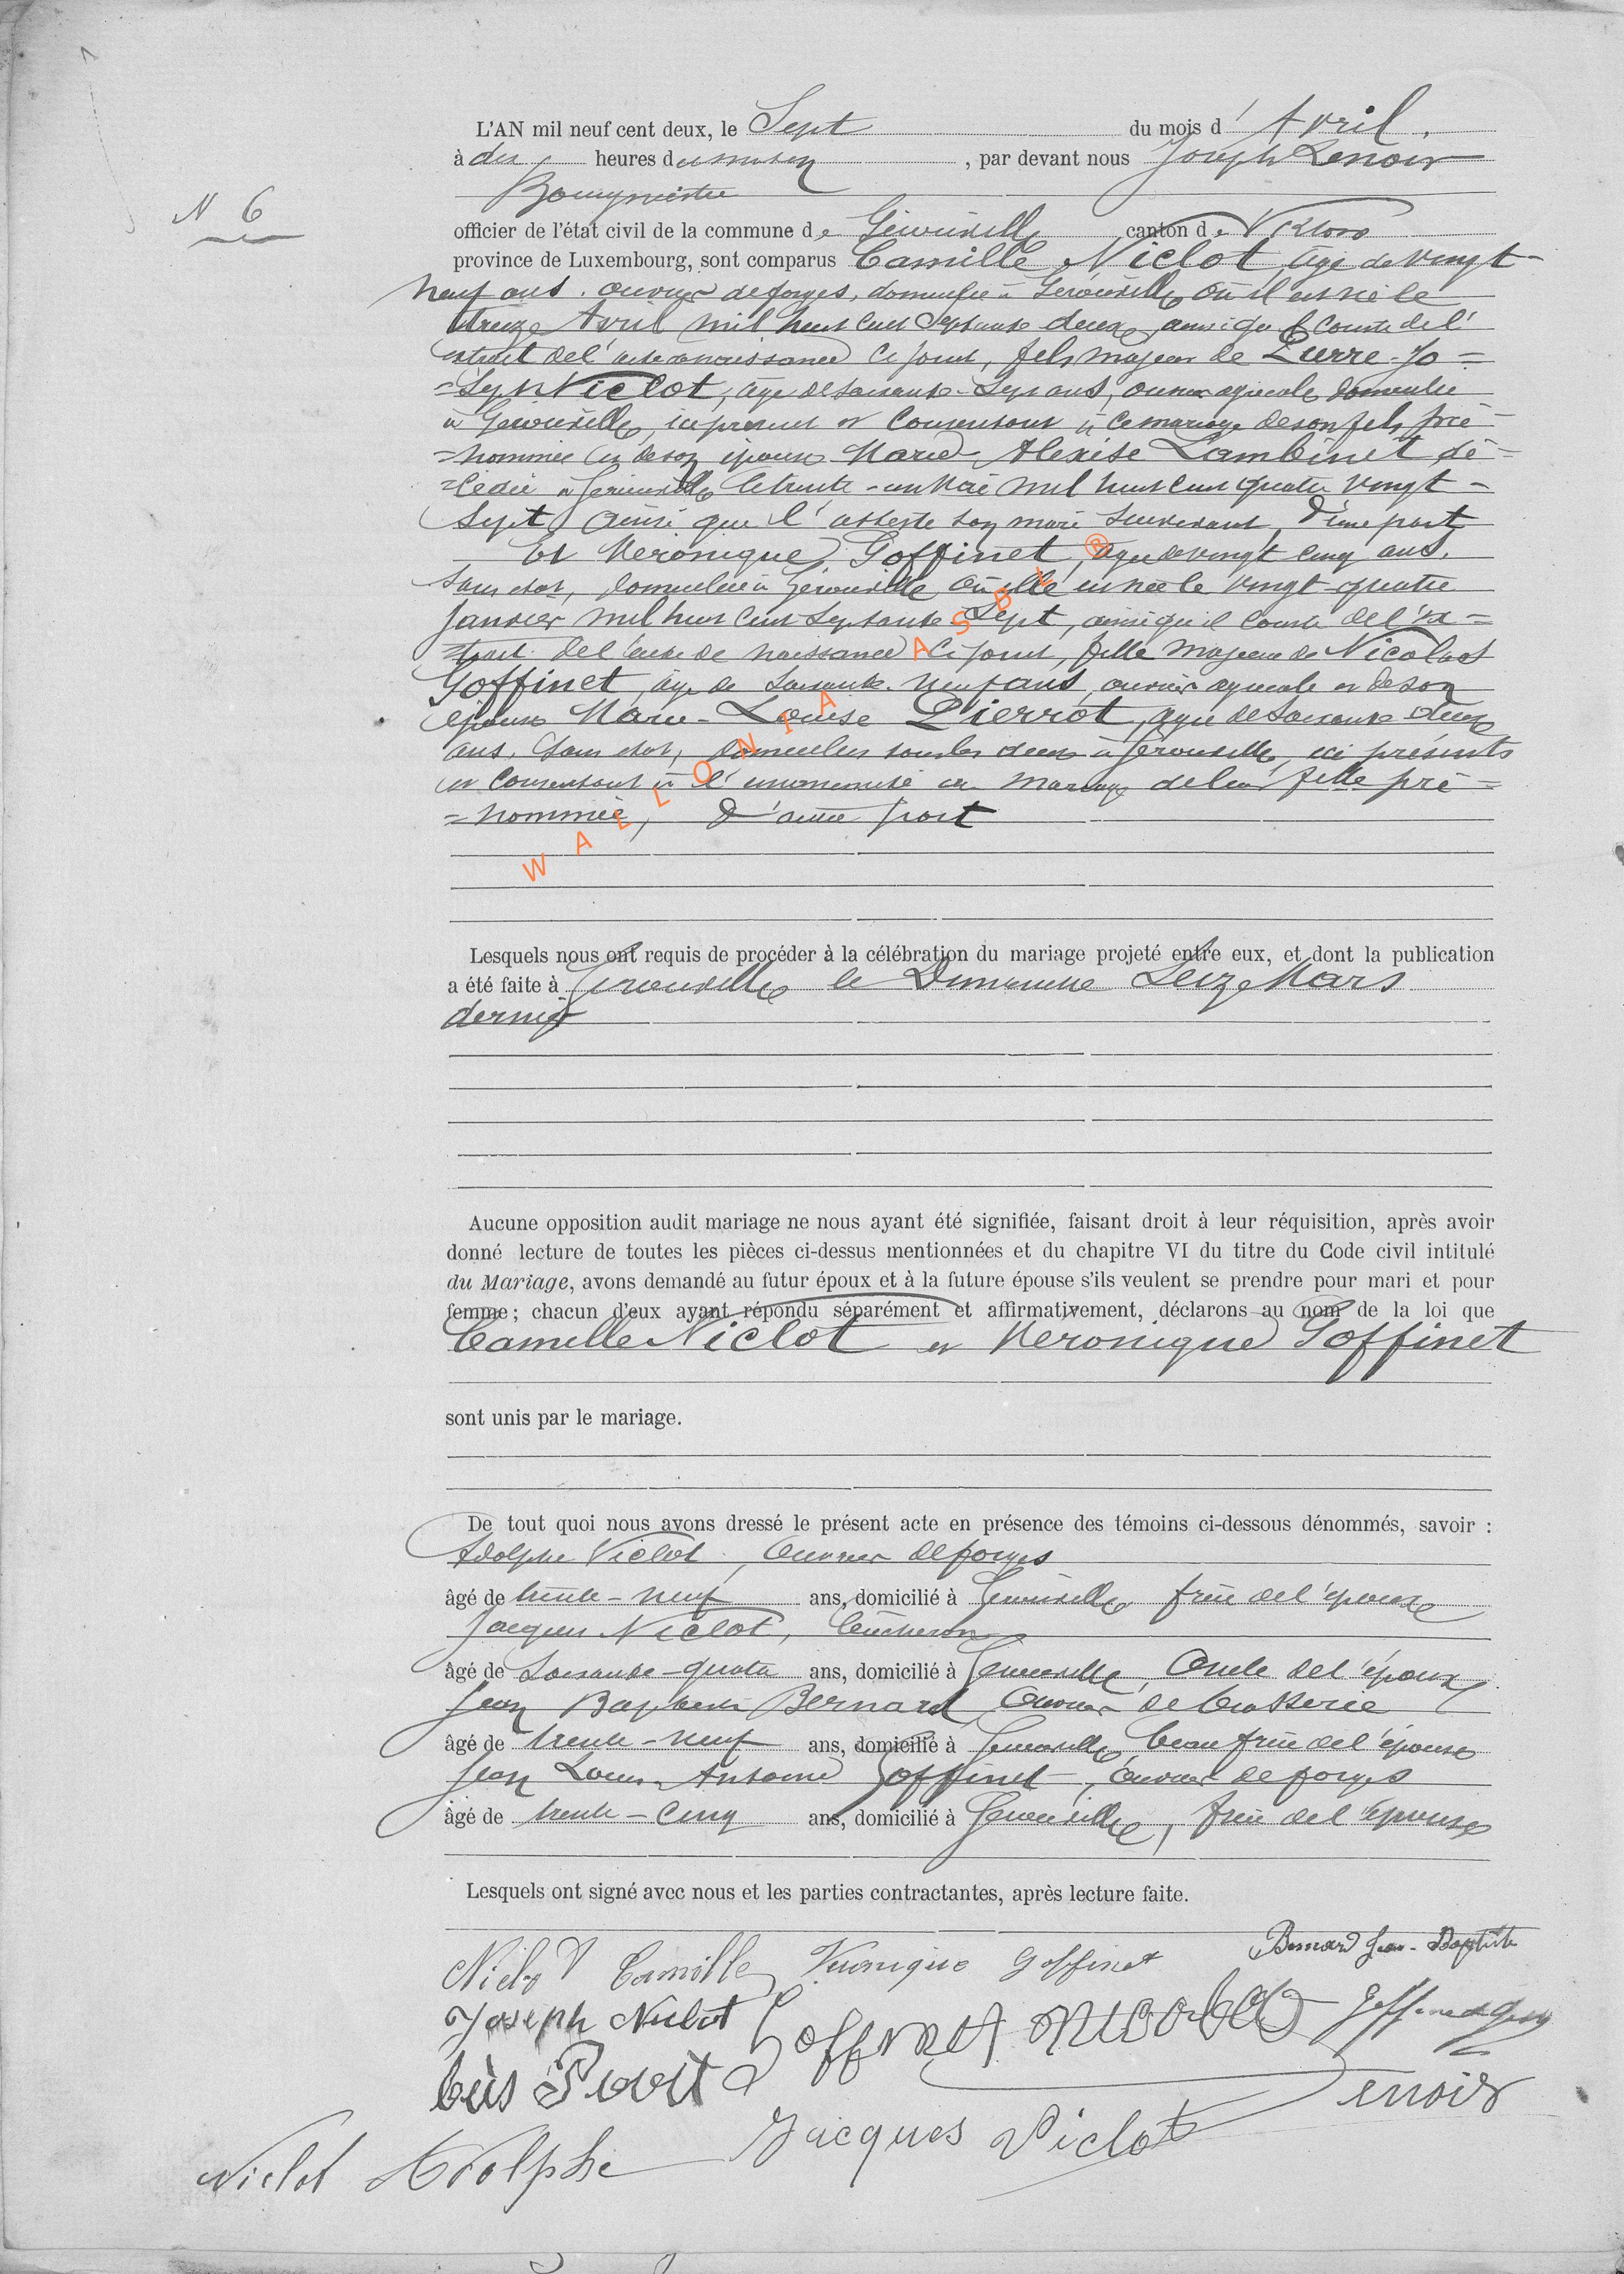 L'AN mil neuf cent deux, le Sept du mois d' Avril.
à dix heures du matin, par devant nous Joseph Lenoir
N 6
Bourgmestre
officier de l'état civil de la commune de Gérouville canton de Virton
province de Luxembourg, sont comparus Camille Niclot âgé de vingt-
neuf ans, ouvrier de forges, domicilié à Gérouville où il est né le
treize Avril mil huit cent septante deux, ainsi qu'il conste de l'
extrait de l'acte de naissance ci joint, fils majeur de Pierre-Jo=
=seph Niclot, âgé de soixante-sept ans, ouvrier agricole domicilié
à Gérouville, ici présent et consentant à ce mariage de son fils pré=
=nommé et de son épouse Marie-Alexise Lambinet dé=
=cédée à Gérouville le trente-un Mai mil huit cent quatre vingt-
sept ainsi que l'atteste son mari survivant, d'une part
Et Véronique Goffinet, âgée de vingt cinq ans,
sans état, domiciliée à Gérouville où elle est née le vingt-quatre
Janvier mil huit cent septante-sept, ainsi qu'il conste de l'ex=
=trait de l'acte de naissance ci joint, fille majeure de Nicolas
Goffinet, âgé de soixante-neuf ans, ouvrier agricole et de son
épouse Marie-Louise Pierrot, âgée de soixante deux
ans, sans état, domiciliés tous les deux à Gérouville, ici présents
et consentant à en mariage de leur fille pré=
=nommée, d'autre part
WALLONIA ASBL ®
Lesquels nous ont requis de procéder à la célébration du mariage projeté entre eux, et dont la publication
a été faite à Gérouville le Dimanche Seize Mars
dernier
Aucune opposition audit mariage ne nous ayant été signifiée, faisant droit à leur réquisition, après avoir
donné lecture de toutes les pièces ci-dessus mentionnées et du chapitre VI du titre du Code civil intitulé
du Mariage, avons demandé au futur époux et à la future épouse s'ils veulent se prendre pour mari et pour
femme; chacun d'eux ayant répondu séparément et affirmativement, déclarons au nom de la loi que
Camille Niclot et Véronique Goffinet
sont unis par le mariage.
De tout quoi nous avons dressé le présent acte en présence des témoins ci-dessous dénommés, savoir :
Adolphe Niclot, Ouvrier de forges
âgé de trente-neuf ans, domicilié à Gérouville frère de l'époux
Jacques Niclot, bûcheron
âgé de Soixante-quatre ans, domicilié à Gérouville, Oncle de l'époux
Jean Baptiste Bernard Ouvrier de brasserie
âgé de trente-neuf ans, domicilié à Gérouville, beau frère de l'épouse
Jean Louis Antoine Goffinet, ouvrier de forges
âgé de trente-cinq ans, domicilié à Gérouville, frère de l'épouse
Lesquels ont signé avec nous et les parties contractantes, après lecture faite.
Niclot Camille Véronique Goffinet Bernard Jean-Baptiste
Joseph Niclot Goffinet Nicolas Goffinet
Lenoir
Jacques Niclot
Niclot Adolphe